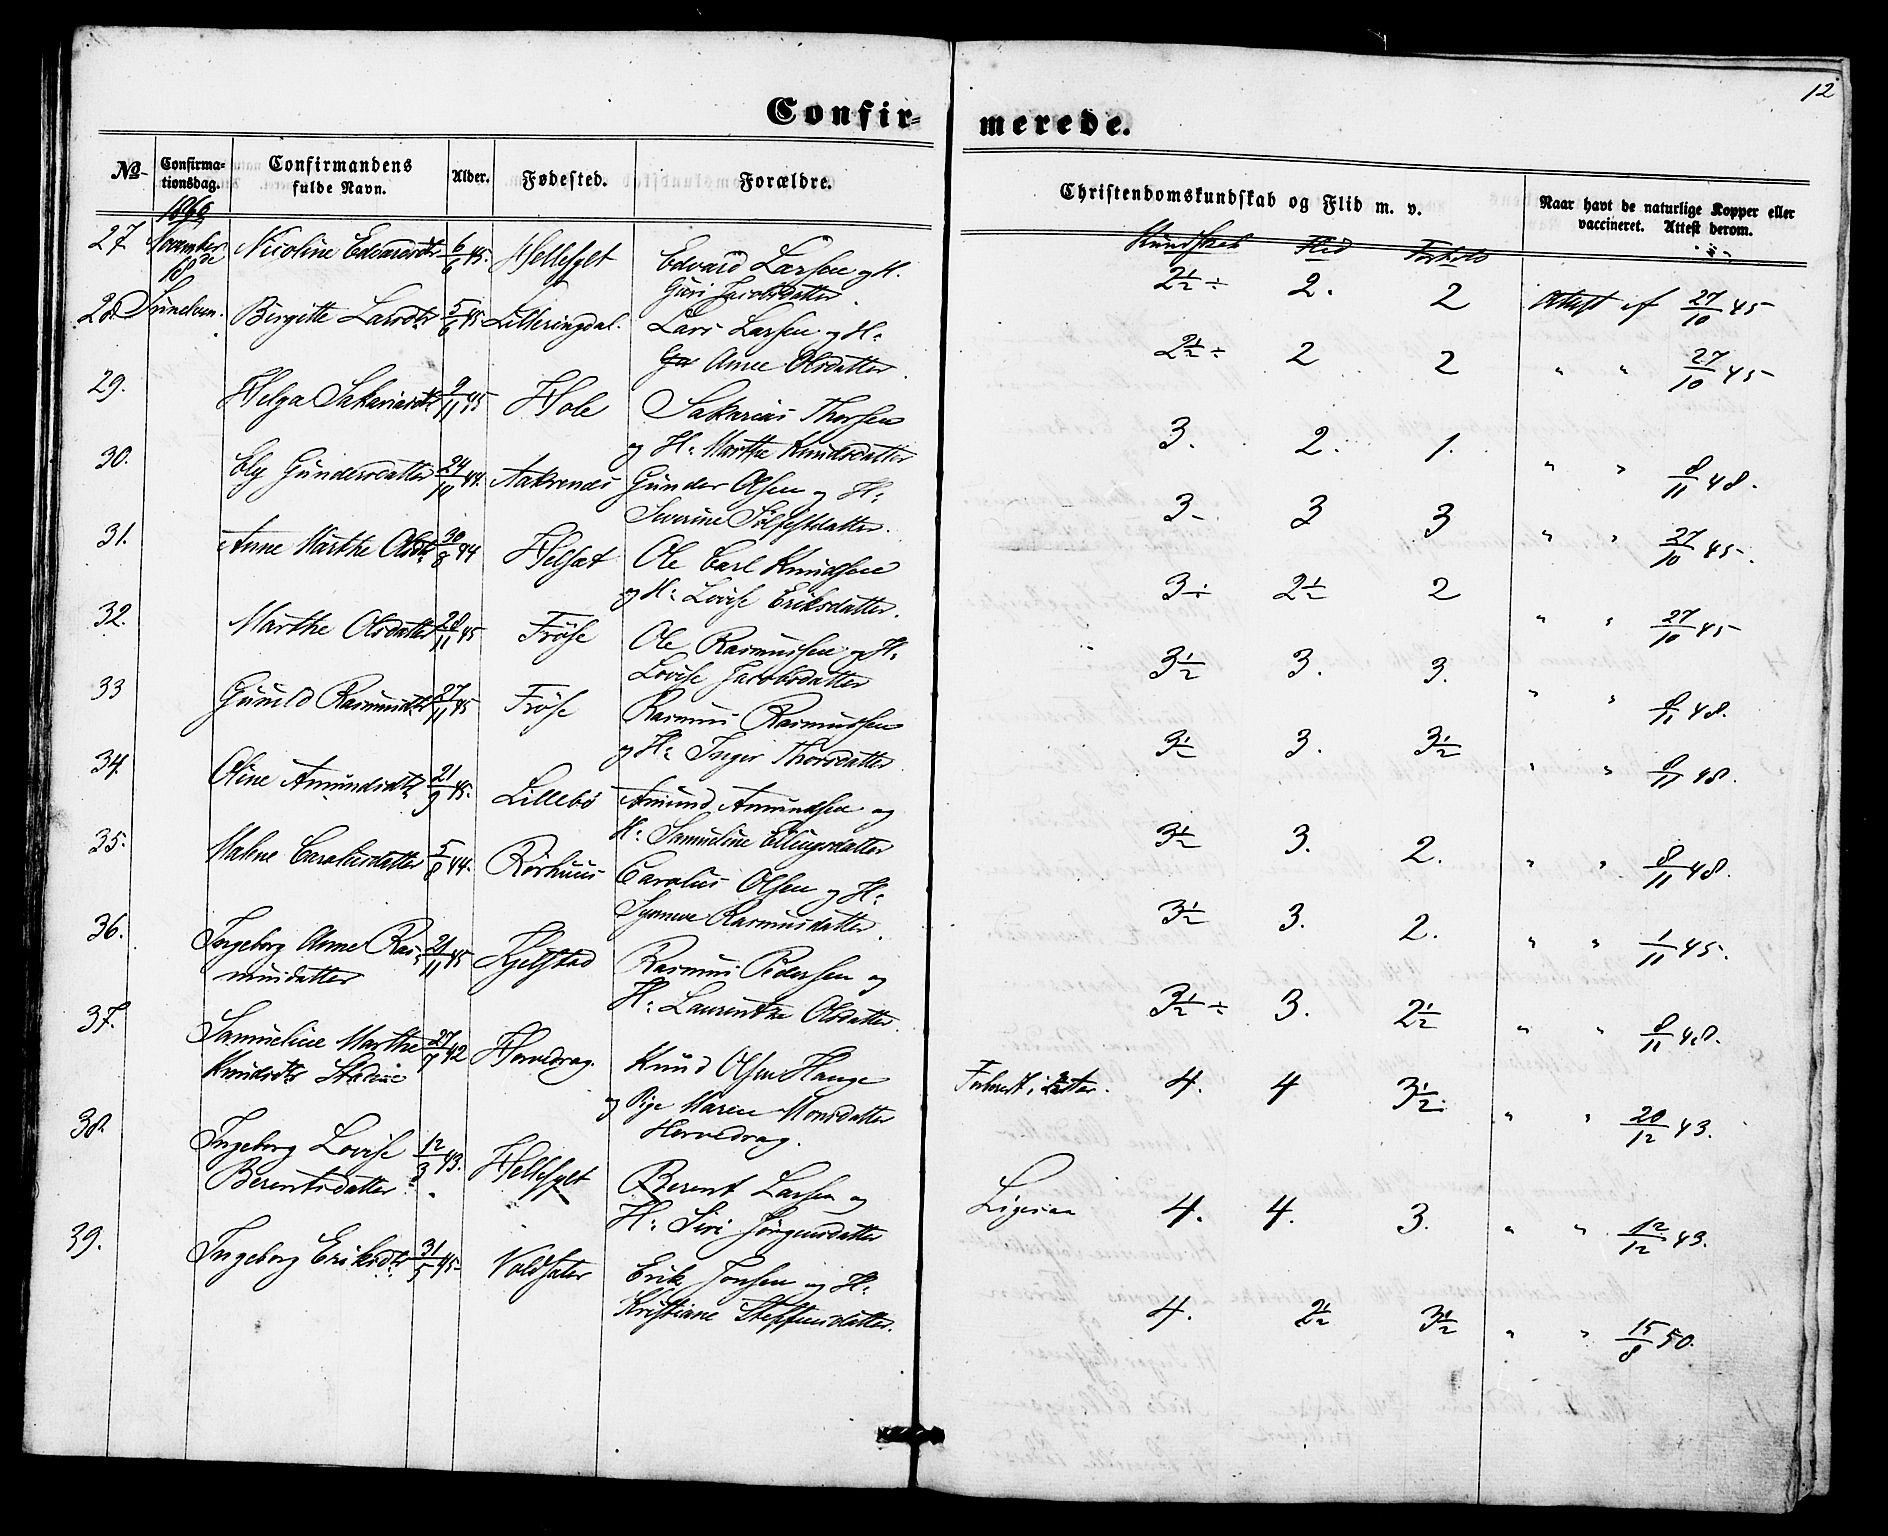 12
Confir- merede.
No Confirma-tionsdag. Confirmandens fulde Navn. Alder. Fødested. Forældre. Christendomskundskab og Flid m. v. Naar havt de naturlige Kopper eller vaccineret. Attest derom.
1860 Kundskab Flid Forhold
27. November 18de Nicoline Edvardsdtr 6/6 45. Hellesylt Edvard Larsen og H. 2½÷ 2. 2 Attest af 27/10 45
Guri Jacobsdatter.
28. Sunelven. Birgitte Larsdtr 5/6 45 Lilleringdal. Lars Larsen og H: 2½÷ 2 2 " " 27/10 45
Anne Olsdatter.
29. Helga Sakariasdtr 9/11 45 Hole Sakarias Thorsen 3. 2. 1. " " 8/11 48.
og H: Marthe Knudsdatter
30. Ely Gundersdatter 24/10 44. Aakrenæs Gunder Olsen og H: 3- 3 3 " " 27/10 45.
Severine Sylfestdatter.
31. Anne Marthe Olsdtr 30/8 44 Helsæt Ole Carl Knudsen 3÷ 2½ 2 " " 27/10 45
og H: Lovise Eriksdatter.
32. Marthe Olsdatter 28/11 45 Frøse Ole Rasmussen og H: 3½ 3. 3. " " 8/11 48.
Lovise Jacobsdatter
33 Gunild Rasmusdtr 27/11 45 Frøse Rasmus Rasmussen 3½ 3. 3½ " " 8/11 48.
og H: Inger Thorsdatter
34. Oline Amundsdtr 21/9 45. Lillebø Amund Amundsen og 3½ 3. 2. " " 8/11 48.
H: Samueline Ellingsdatter
35. Malene Carolusdatter 5/8 44. Rørhuus Carolus Olsen og H: 3½ 3. 2. " " 1/11 45.
Synneve Rasmusdatter.
36. Ingeborg Anne Ras- 21/11 45 Kjelstad Rasmus Pedersen og 3½÷ 3. 2½ " " 8/11 48.
musdatter H: Laurentze Olsdatter.
37. Samueline Marthe 27/7 42 Horvedrag. Knud Olsen Hauge 4. 4 3½ " " 20/12 43.
Knudsdtr og Pige Maren Monsdatter
Horvedrag.
38. Ingeborg Lovise 12/3 43. Hellesylt Berent Larsen og Ligesaa 4. 4. 3. " " 12/12 43.
Berentsdatter H: Siri Jørgensdatter
39. Ingeborg Eriksdtr 31/5 45 Voldsæter Erik Jonsen og H: 4. 2½ 3½ " " 15/8 50.
Kristiane Steffensdatter.